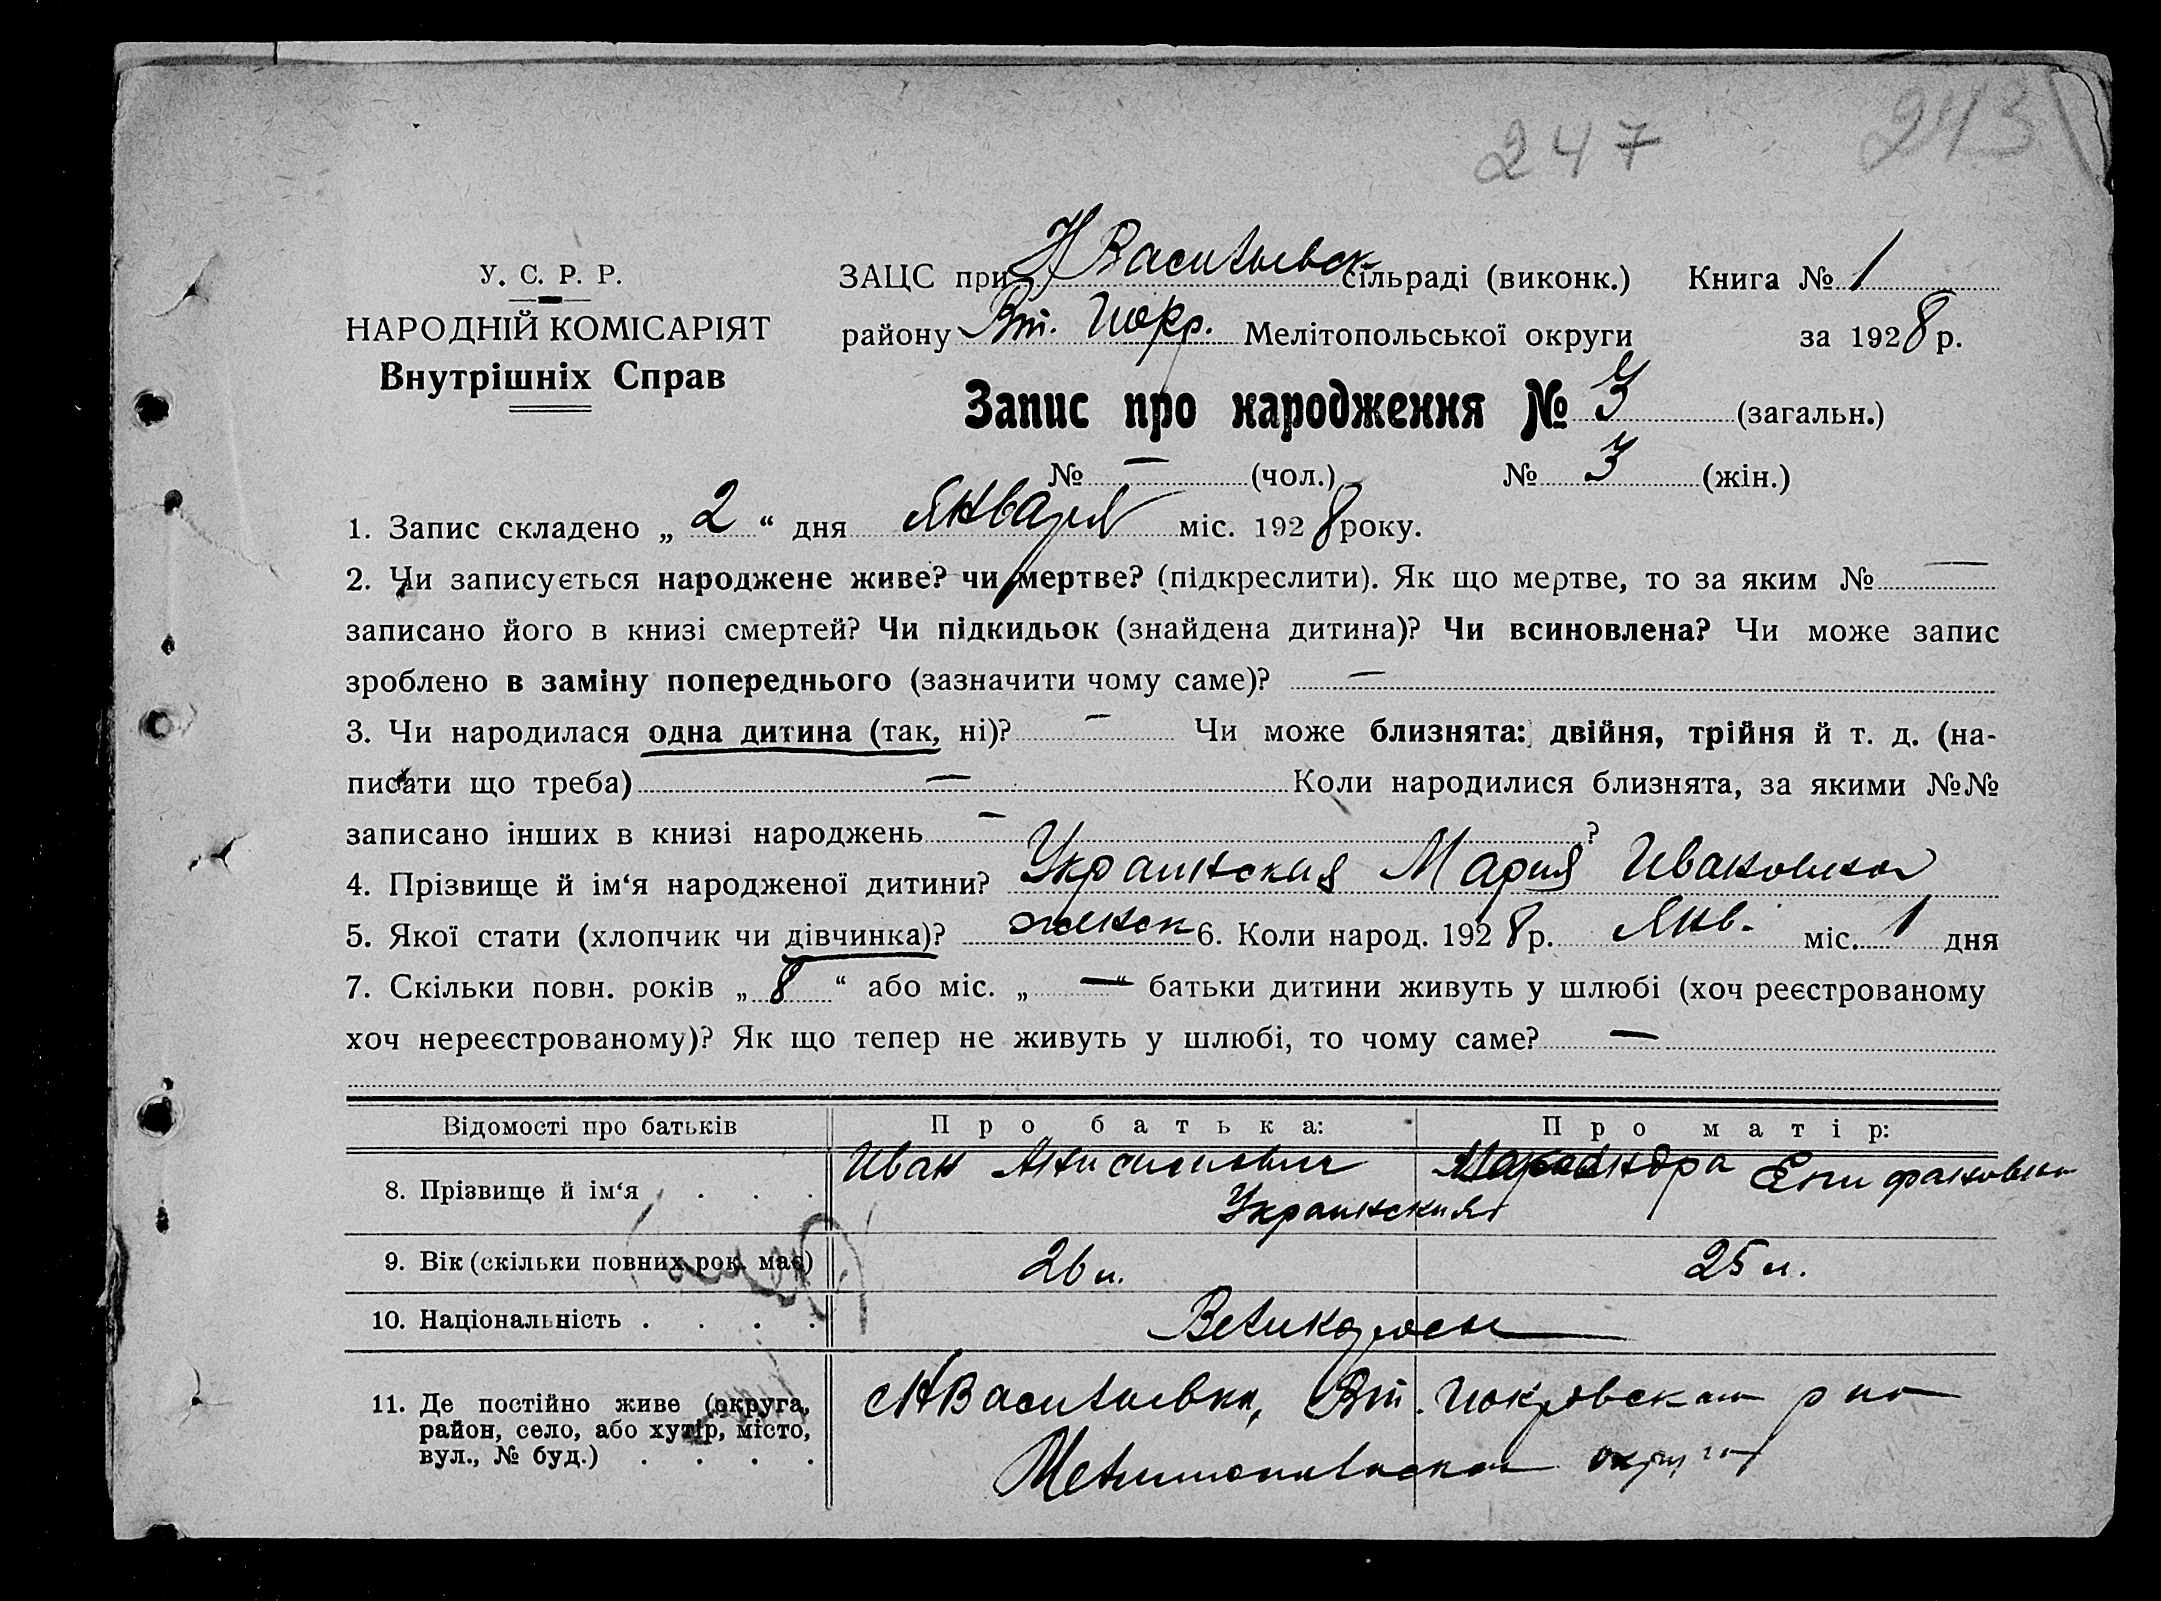 247 243
У. С. Р. Р.
НАРОДНІЙ КОМІСАРІЯТ
Внутрішніх Справ
ЗАЦС при Н Васильевск сільраді (виконк.) Книга № 1
району Вт. Покр. Мелітопольської округи за 1928 р.
Запис про народження № 3 (загальн.)
№ — (чол.) № 3 (жін.)
1. Запис складено „ 2 “ дня Января міс. 1928 року.
2. Чи записується народжене живе? чи мертве? (підкреслити). Як що мертве, то за яким № —
записано його в книзі смертей? Чи підкидьок (знайдена дитина)? Чи всиновлена? Чи може запис
зроблено в заміну попереднього (зазначити чому саме)? —
3. Чи народилася одна дитина (так, ні)? — Чи може близнята: двійня, трійня й т. д. (на-
писати що треба) — Коли народилися близнята, за якими №№
записано інших в книзі народжень — ?
4. Прізвище й ім‘я народженої дитини? Украинская Мария Ивановна
5. Якої стати (хлопчик чи дівчинка)? женск 6. Коли народ. 1928 р. Янв. міс. 1 дня
7. Скільки повн. років „ 8 “ або міс. „ — “ батьки дитини живуть у шлюбі (хоч реєстрованому
хоч нереєстрованому)? Як що тепер не живуть у шлюбі, то чому саме? —
Відомості про батьків Про батька: Про матір:
8. Прізвище й ім‘я . . . Иван Епифановна
Украинския
9. Вік (скільки повних рок. має) 26 л. 25 л.
10. Національність . . . . Великоросы
11. Де постійно живе (округа, район, село, або хутір, місто, вул., № буд.) . . . . Н Васильевка, Вт. Покровскаго р на
Мелитопольской округи